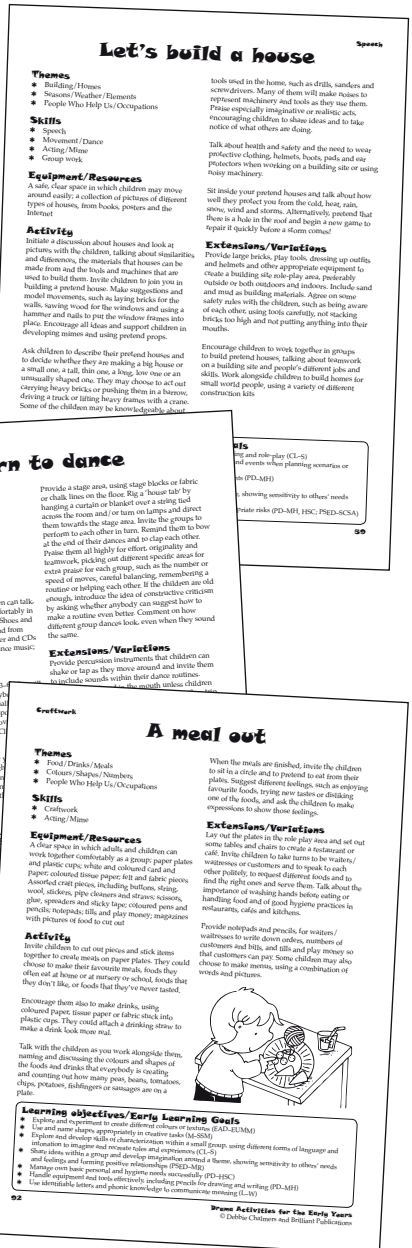 Speech
Let's build a house
Themes
✱ Building/Homes
✱ Seasons/Weather/Elements
✱ People Who Help Us/Occupations
Skills
✱ Speech
✱ Movement/Dance
✱ Acting/Mime
✱ Group work
Equipment/Resources
A safe, clear space in which children may move
around easily; a collection of pictures of different
types of houses, from books, posters and the
Internet
Activity
Initiate a discussion about houses and look at
pictures with the children, talking about similarities
and differences, the materials that houses can be
made from and the tools and machines that are
used to build them. Invite children to join you in
building a pretend house. Make suggestions and
model movements, such as laying bricks for the
walls, sawing wood for the windows and using a
hammer and nails to put the window frames into
place. Encourage all ideas and support children in
developing mimes and using pretend props.
Ask children to describe their pretend houses and
to decide whether they are making a big house or
a small one, a tall, thin one, a long, low one or an
unusually shaped one. They may choose to act out
carrying heavy bricks or pushing them in a barrow,
driving a truck or lifting heavy frames with a crane.
Some of the children may be knowledgeable about
tools used in the home, such as drills, sanders and
screwdrivers. Many of them will make noises to
represent machinery and tools as they use them.
Praise especially imaginative or realistic acts,
encouraging children to share ideas and to take
notice of what others are doing.
Talk about health and safety and the need to wear
protective clothing, helmets, boots, pads and ear
protectors when working on a building site or using
noisy machinery.
Sit inside your pretend houses and talk about how
well they protect you from the cold, heat, rain,
snow, wind and storms. Alternatively, pretend that
there is a hole in the roof and begin a new game to
repair it quickly before a storm comes!
Extensions/Variations
Provide large bricks, play tools, dressing up outfits
and helmets and other appropriate equipment to
create a building site role-play area, preferably
outside or both outdoors and indoors. Include sand
and mud as building materials. Agree on some
safety rules with the children, such as being aware
of each other, using tools carefully, not stacking
bricks too high and not putting anything into their
mouths.
Encourage children to work together in groups
to build pretend houses, talking about teamwork
on a building site and people's different jobs and
skills. Work alongside children to build homes for
small world people, using a variety of different
construction kits
als
ng and role-play (CL–S)
nd events when planning scenarios or
nts (PD–MH)
, showing sensitivity to others' needs
priate risks (PD–MH, HSC; PSED–SCSA)
59
rn to dance
Provide a stage area, using stage blocks or fabric
or chalk lines on the floor. Rig a 'house tab' by
hanging a curtain or blanket over a string tied
across the room and/or turn on lamps and direct
them towards the stage area. Invite the groups to
perform to each other in turn. Remind them to bow
at the end of their dances and to clap each other.
Praise them all highly for effort, originality and
teamwork, picking out different specific areas for
extra praise for each group, such as the number or
speed of moves, careful balancing, remembering a
routine or helping each other. If the children are old
enough, introduce the idea of constructive criticism
by asking whether anybody can suggest how to
make a routine even better. Comment on how
different group dances look, even when they sound
the same.
Extensions/Variations
Provide percussion instruments that children can
shake or tap as they move around and invite them
to include sounds within their dance routines.
the mouth unless children
en can talk,
fortably in
Shoes and
d from
er and CDs
nce music;
Craftwork
A meal out
Themes
✱ Food/Drinks/Meals
✱ Colours/Shapes/Numbers
✱ People Who Help Us/Occupations
Skills
✱ Craftwork
✱ Acting/Mime
Equipment/Resources
A clear space in which adults and children can
work together comfortably as a group; paper plates
and plastic cups; white and coloured card and
paper; coloured tissue paper; felt and fabric pieces
Assorted craft pieces, including buttons, string,
wool, stickers, pipe cleaners and straws; scissors,
glue, spreaders and sticky tape; coloured pens and
pencils; notepads; tills and play money; magazines
with pictures of food to cut out
Activity
Invite children to cut out pieces and stick items
together to create meals on paper plates. They could
choose to make their favourite meals, foods they
often eat at home or at nursery or school, foods that
they don't like, or foods that they've never tasted.
Encourage them also to make drinks, using
coloured paper, tissue paper or fabric stuck into
plastic cups. They could attach a drinking straw to
make a drink look more real.
Talk with the children as you work alongside them,
naming and discussing the colours and shapes of
the foods and drinks that everybody is creating
and counting out how many peas, beans, tomatoes,
chips, potatoes, fishfingers or sausages are on a
plate.
When the meals are finished, invite the children
to sit in a circle and to pretend to eat from their
plates. Suggest different feelings, such as enjoying
favourite foods, trying new tastes or disliking
one of the foods, and ask the children to make
expressions to show those feelings.
Extensions/Variations
Lay out the plates in the role play area and set out
some tables and chairs to create a restaurant or
café. Invite children to take turns to be waiters/
waitresses or customers and to speak to each
other politely, to request different foods and to
find the right ones and serve them. Talk about the
importance of washing hands before eating or
handling food and of good hygiene practices in
restaurants, cafés and kitchens.
Provide notepads and pencils, for waiters/
waitresses to write down orders, numbers of
customers and bills, and tills and play money so
that customers can pay. Some children may also
choose to make menus, using a combination of
words and pictures.
Learning objectives/Early Learning Goals
✱ Explore and experiment to create different colours or textures (EAD–EUMM)
✱ Use and name shapes appropriately in creative tasks (M–SSM)
✱ Explore and develop skills of characterization within a small group, using different forms of language and
intonation to imagine and recreate roles and experiences (CL–S)
✱ Share ideas within a group and develop imagination around a theme, showing sensitivity to others' needs
and feelings and forming positive relationships (PSED–MR)
✱ Manage own basic personal and hygiene needs successfully (PD–HSC)
✱ Handle equipment and tools effectively, including pencils for drawing and writing (PD–MH)
✱ Use identifiable letters and phonic knowledge to communicate meaning (L–W)
92
Drama Activities for the Early Years
© Debbie Chalmers and Brilliant Publications